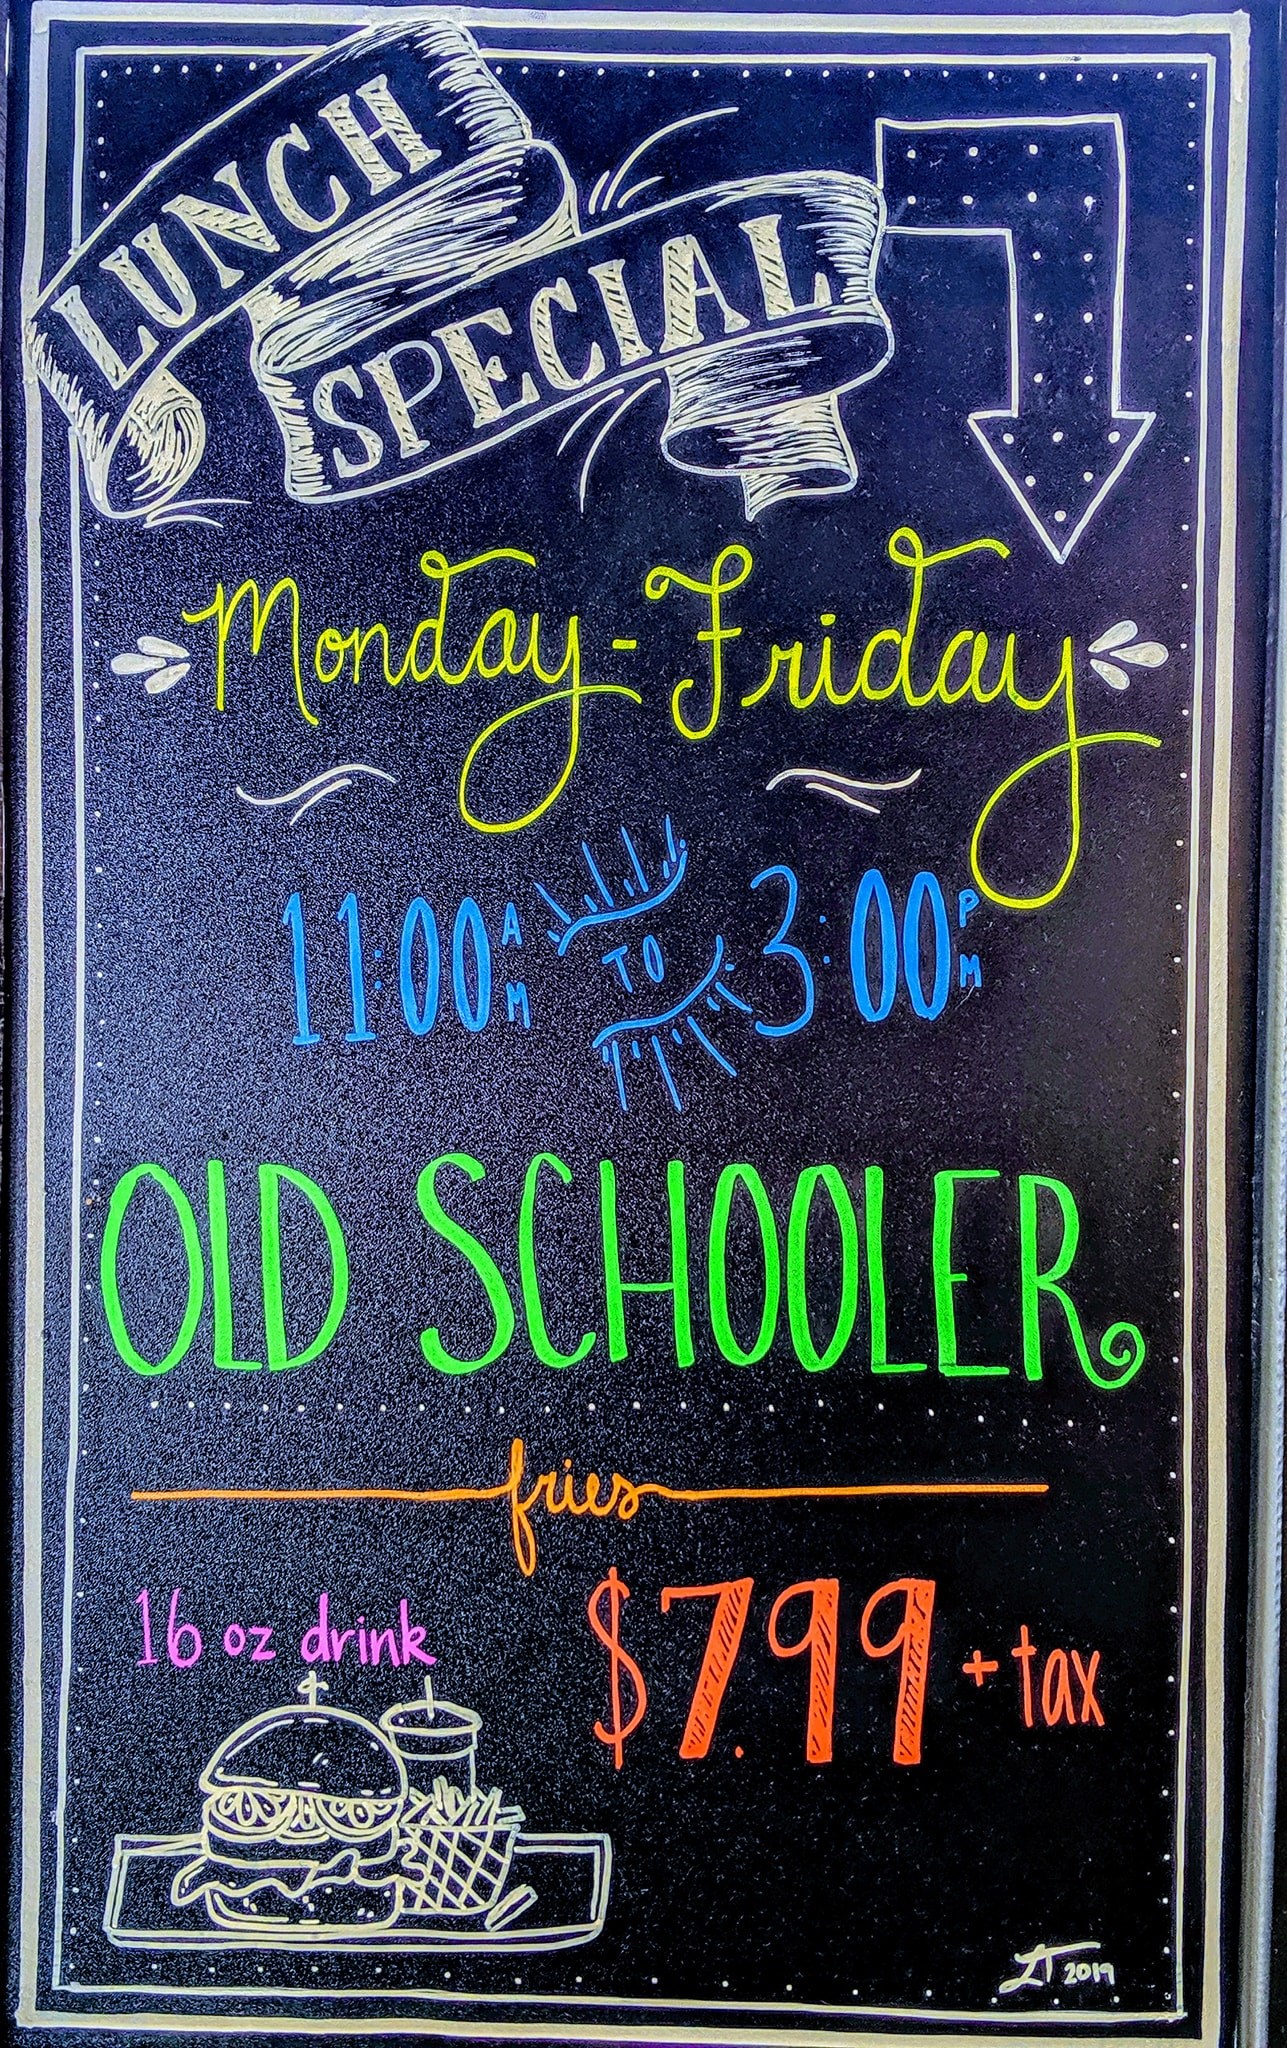 LUNCH
SPECIAL
Monday-Friday
11:00 AM TO 3:00 PM
OLD SCHOOLER
fries
16 oz drink
$7.99 + tax
LT 2019